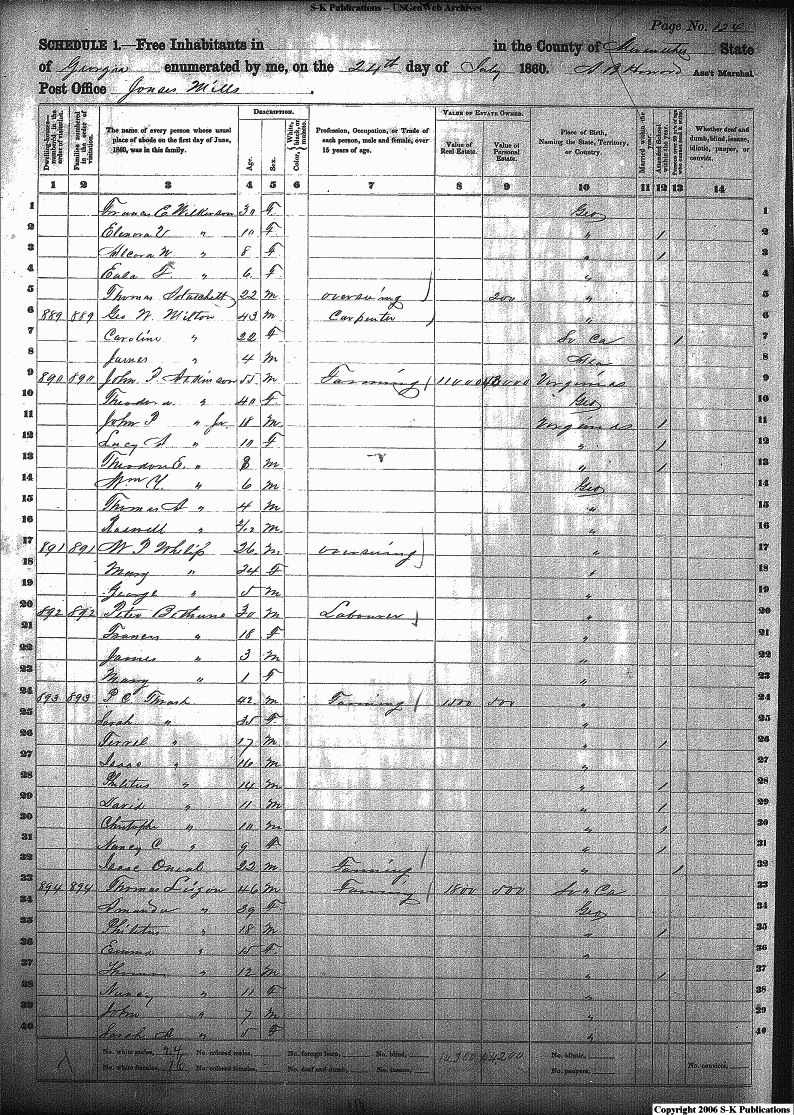 S-K Publications -- USGenWeb Archives
Page No. 124
SCHEDULE 1.—Free Inhabitants in in the County of Meriwether State
of Georgia enumerated by me, on the 24th day of July 1860. Ass't Marshal
Post Office Jones Mills.
DESCRIPTION. VALUE OF ESTATE OWNED.
Dwelling-houses—numbered in the order of visitation.
Families numbered in the order of visitation.
The name of every person whose usual place of abode on the first day of June, 1860, was in this family.
Age.
Sex.
Color, White, black, or mulatto.
Profession, Occupation, or Trade of each person, male and female, over 15 years of age.
Value of Real Estate.
Value of Personal Estate.
Place of Birth, Naming the State, Territory, or Country.
Married within the year.
Attended School within the year.
Whether deaf and dumb, blind, insane, idiotic, pauper, or convict.
1 2 3 4 5 6 7 8 9 10 11 12 13 14
1 Frances C Wilkinson 30 F Geo 1
2 Elenora V " 10 F " 1 2
3 " 8 F " 1 3
4 Eula F. " 6 F " 4
5 Thomas 22 M overseeing 200 " 5
6 889 889 Geo W. Milton 43 M Carpenter " 6
7 Caroline " 22 F So Ca 1 7
8 James " 4 M 8
9 890 890 John P. Atkinson 55 M Farming 11000 Virginia 9
10 " 40 F Geo 10
11 John P " Jr. 18 M Virginia 1 11
12 Lucy A " 10 F " 1 12
13 E. " 8 M " 1 13
14 Wm Y " 6 M Geo 14
15 Thomas A " 4 M " 15
16 " 2/12 M " 16
17 891 891 W P Whilip 26 M overseeing " 17
18 Mary " 24 F " 18
19 George " 5 M " 19
20 892 892 Peter Bethune 30 M Labourer " 20
21 Frances " 18 F " 21
22 James " 3 M " 22
23 Mary " 1 F " 23
24 893 893 P C Thrash 42 M Farming 1500 500 " 24
25 Sarah " 35 F " 25
26 " 17 M " 1 26
27 Isaac " 16 M " 27
28 Philitus " 14 M " 1 28
29 David " 11 M " 1 29
30 Christophe " 10 M " 1 30
31 Nancy C " 9 F " 1 31
32 Isaac Oneal 22 M Farming " 1 32
33 894 894 Thomas Ligon 46 M Farming 1800 500 So Ca 33
34 Amanda " 39 F Geo 34
35 Philitus " 18 M " 1 35
36 Emma " 15 F " 36
37 Thomas " 12 M " 1 37
38 Nancy " 11 F " 38
39 John " 7 M " 39
40 Sarah A " 5 F " 40
No. white males, 24 No. colored males, No. foreign born, No. blind, No. idiotic,
No. white females, 16 No. colored females, No. deaf and dumb, No. insane, No. paupers, No. convicts,
Copyright 2006 S-K Publications